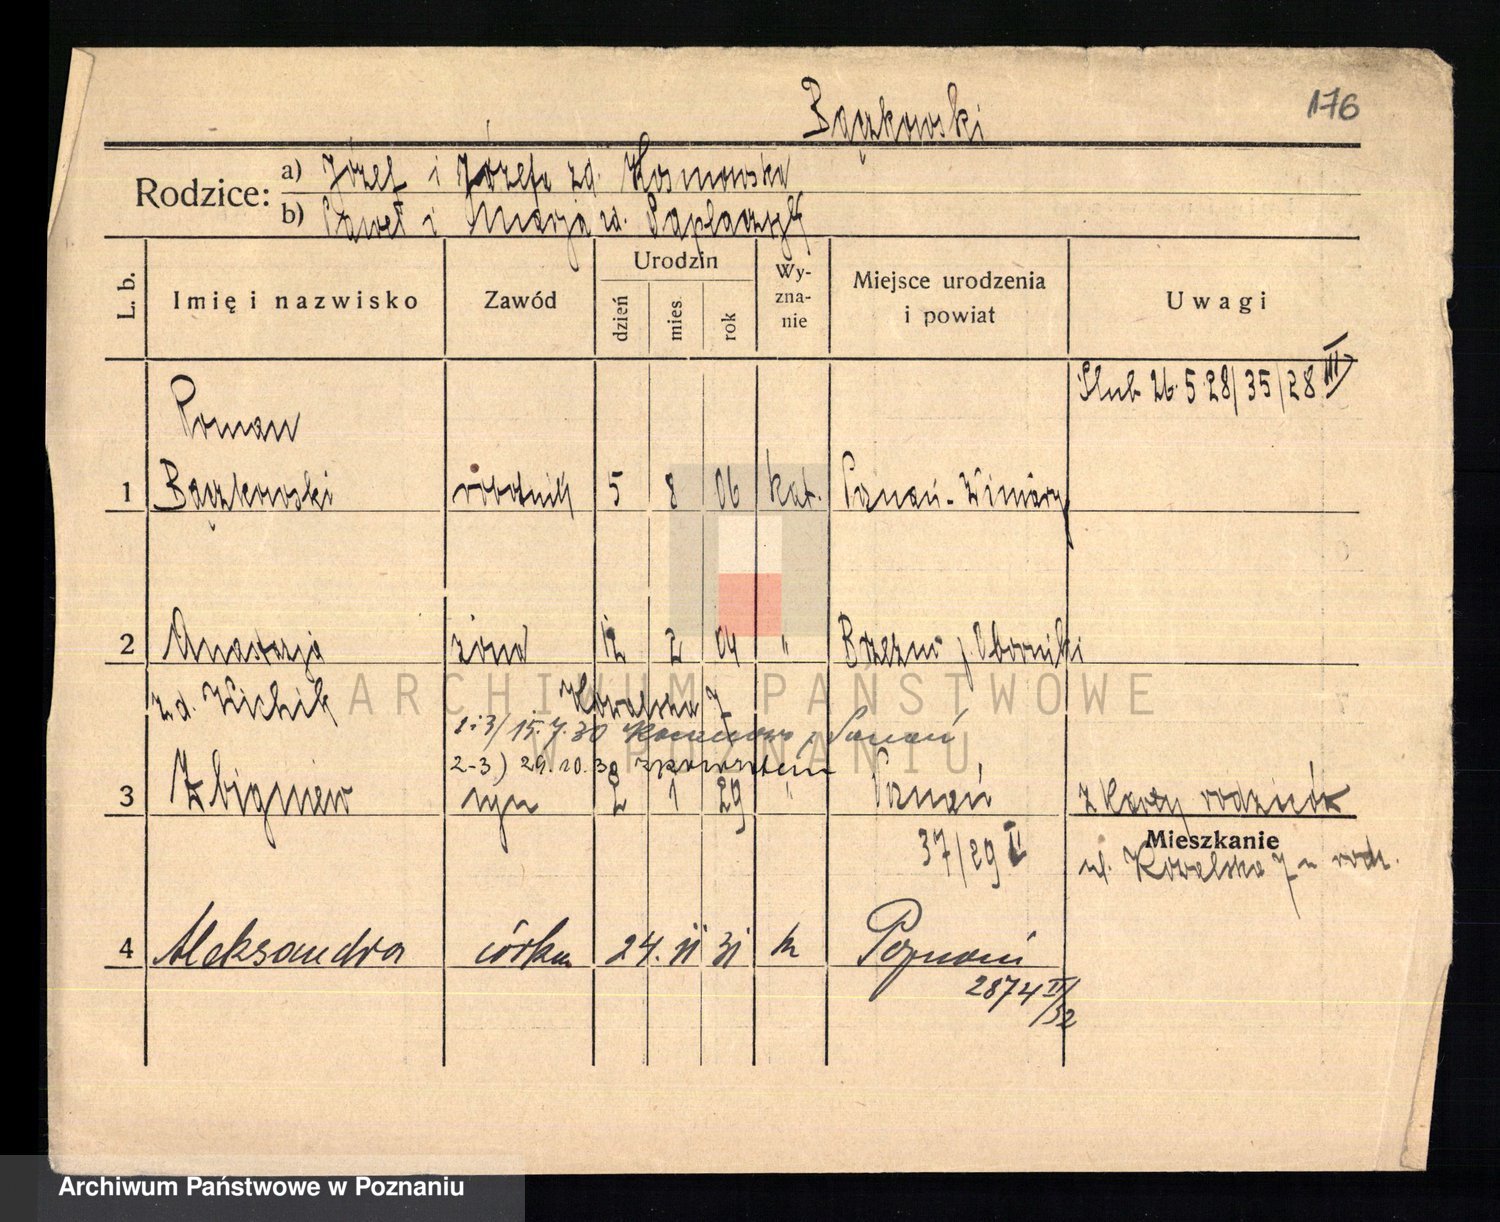 Bączkowski
176
Rodzice:
a) Józef i Józefa zd. Kosmowska
b) Paweł i Marja zd.
L. b.
Imię i nazwisko
Zawód
Urodzin
dzień
mies
rok
Wy-
zna-
nie
Miejsce urodzenia
i powiat
Uwagi
Ślub 26.5.28/35/28 III
Roman
1 Bączkowski robotnik 5 8 06 kat. Poznań-Winiary
2 Anastazja żona 12 2 04 " Brzezno p. Oborniki
zd. Wichik
Kowalska 7
1-3/ 15.7.30 Poznań
2-3) 29.10.30 z powrotem
3 Zbigniew syn 2 1 29 " Poznań z karty rodziców
37/29 II
Mieszkanie
ul. Kowalska 7 u rodz.
4 Aleksandra córka 24. 11 31 k Poznań
2874 II/32
ARCHIWUM PAŃSTWOWE
W POZNANIU
Archiwum Państwowe w Poznaniu